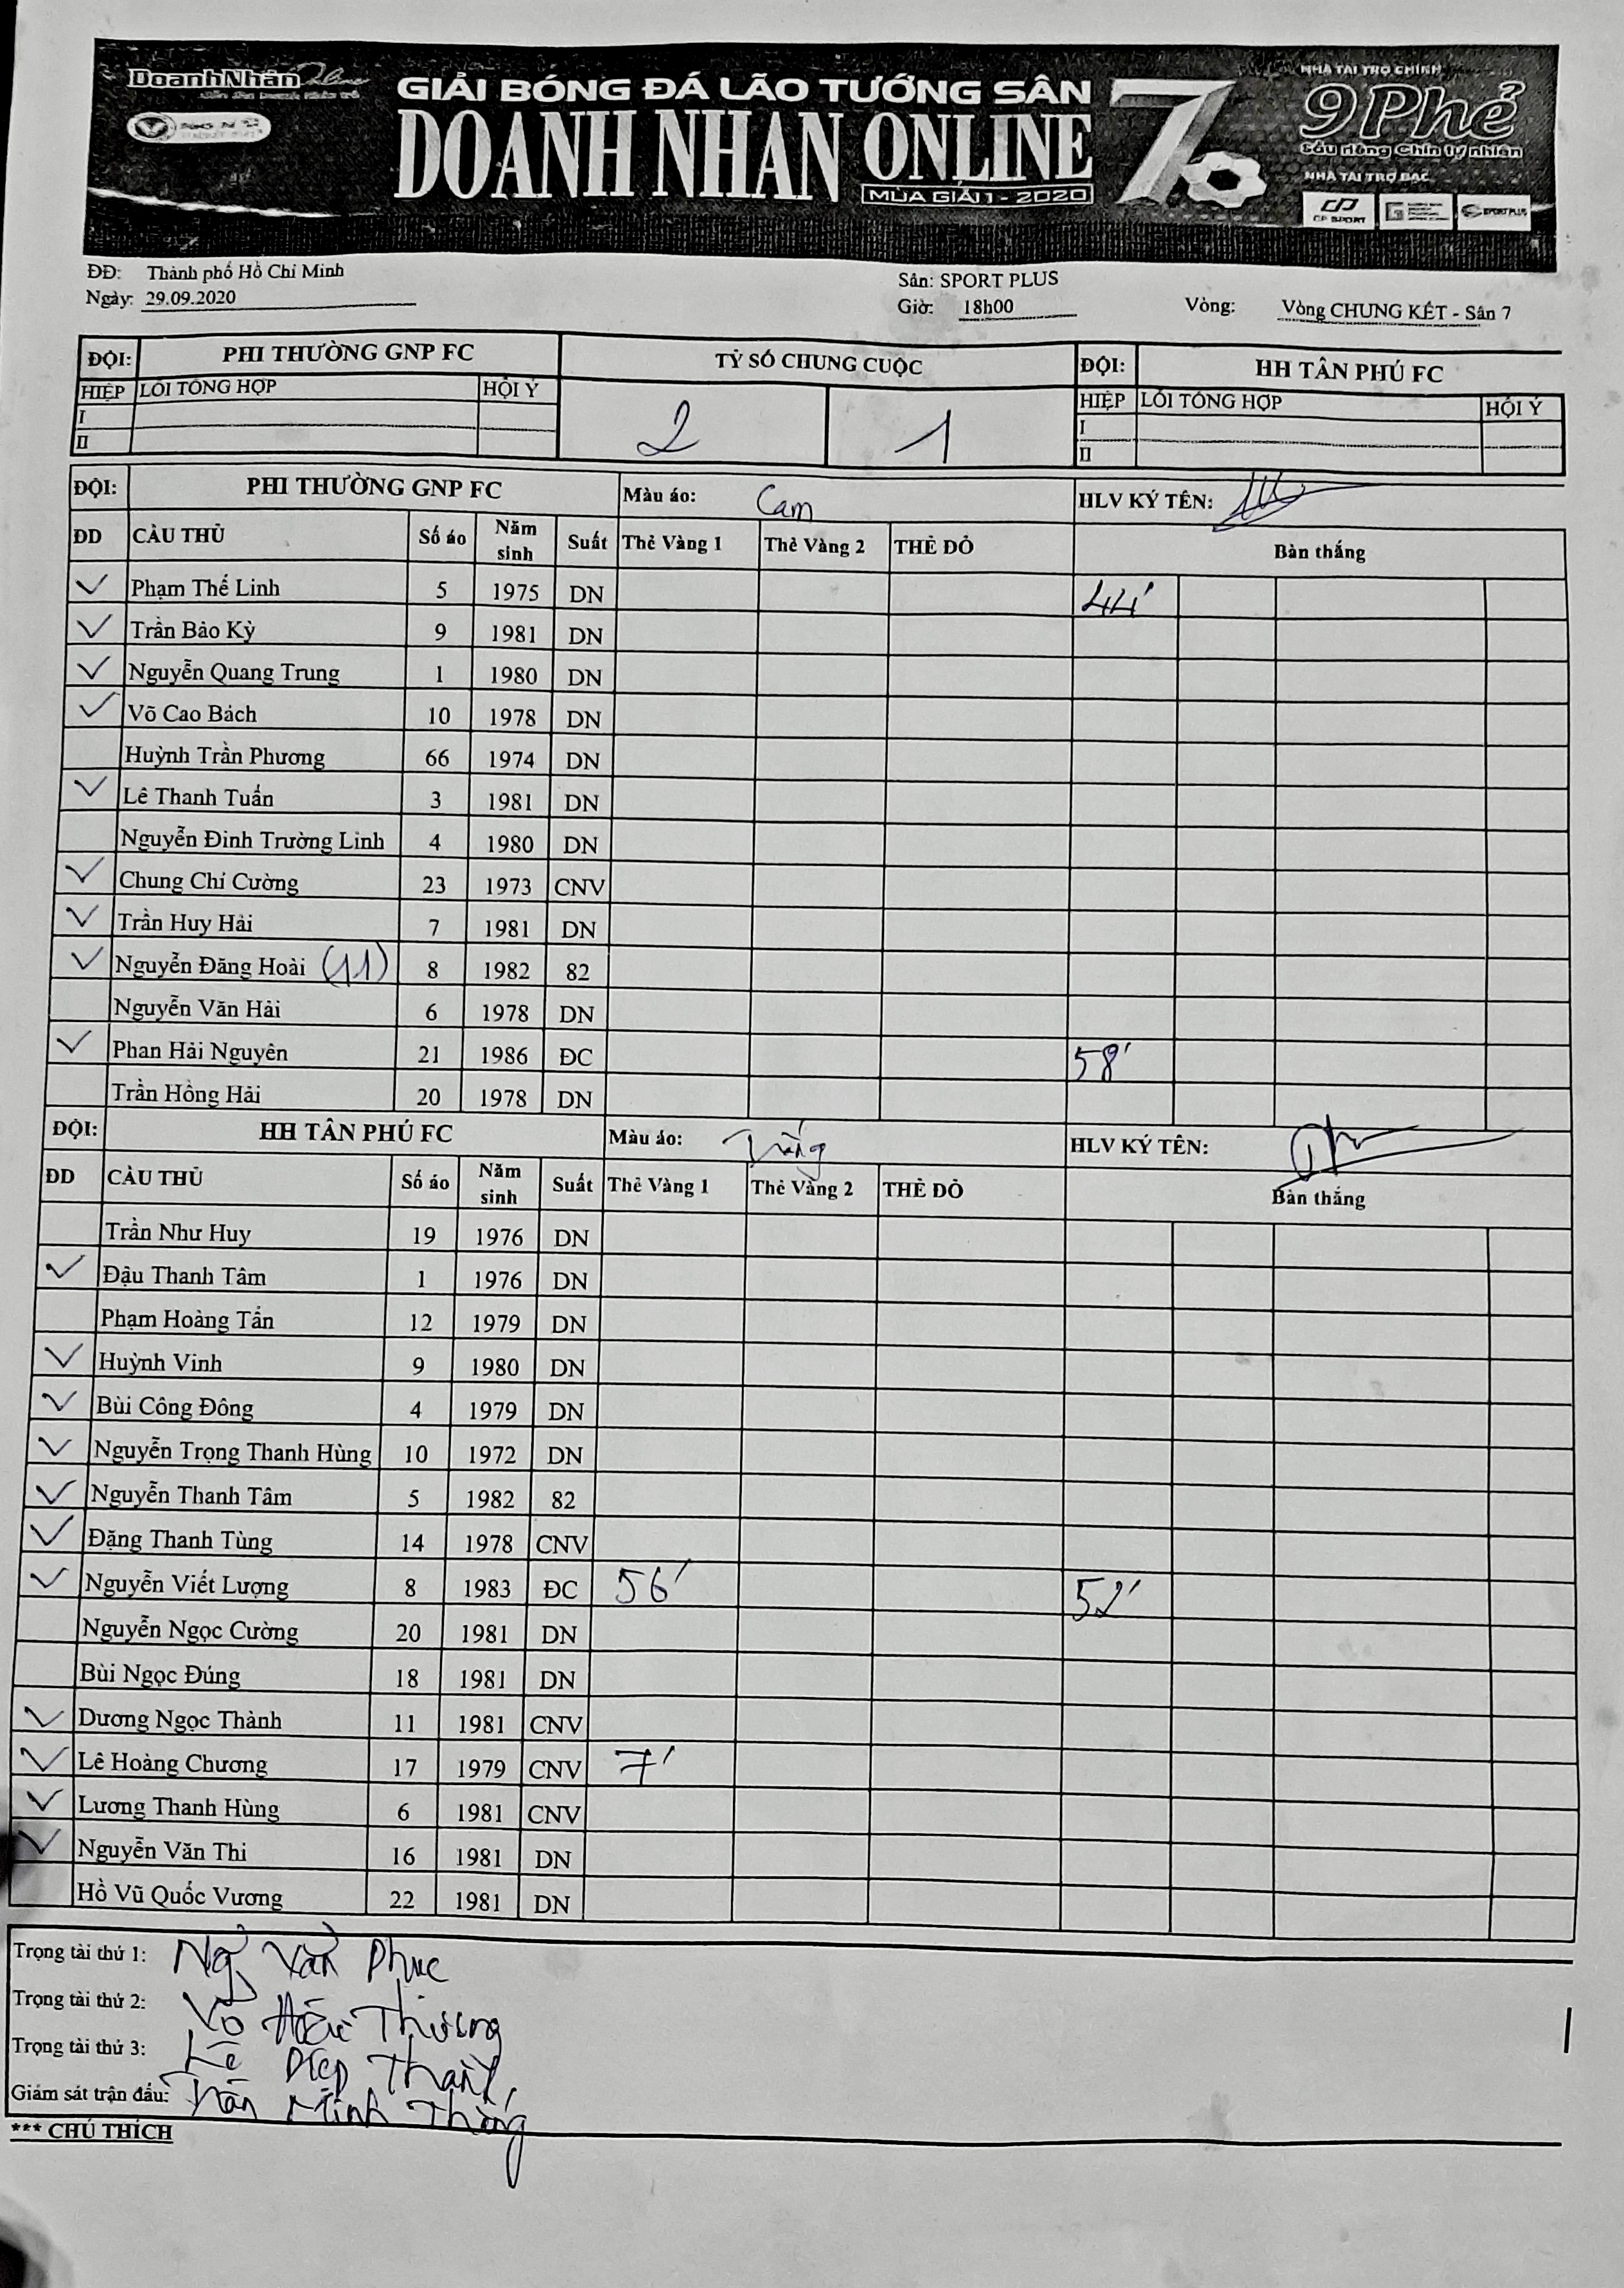 DoanhNhân Online
GIẢI BÓNG ĐÁ LÃO TƯỚNG SÂN 7
DOANH NHÂN ONLINE
MÙA GIẢI 1 - 2020
NHÀ TÀI TRỢ CHÍNH
9Phẻ
Sầu riêng Chín tự nhiên
NHÀ TÀI TRỢ BẠC
CP SPORT
SPORT PLUS
ĐĐ: Thành phố Hồ Chí Minh
Sân: SPORT PLUS
Ngày: 29.09.2020
Giờ: 18h00
Vòng: Vòng CHUNG KẾT - Sân 7
ĐỘI: PHI THƯỜNG GNP FC TỶ SỐ CHUNG CUỘC ĐỘI: HH TÂN PHÚ FC
HIỆP LỖI TỔNG HỢP HỘI Ý 2 1 HIỆP LỖI TỔNG HỢP HỘI Ý
I I
II II
ĐỘI: PHI THƯỜNG GNP FC Màu áo: Cam HLV KÝ TÊN:
ĐD CẦU THỦ Số áo Năm sinh Suất Thẻ Vàng 1 Thẻ Vàng 2 THẺ ĐỎ Bàn thắng
Phạm Thế Linh 5 1975 DN 44'
Trần Bảo Kỳ 9 1981 DN
Nguyễn Quang Trung 1 1980 DN
Võ Cao Bách 10 1978 DN
Huỳnh Trần Phương 66 1974 DN
Lê Thanh Tuấn 3 1981 DN
Nguyễn Đình Trường Linh 4 1980 DN
Chung Chí Cường 23 1973 CNV
Trần Huy Hải 7 1981 DN
Nguyễn Đăng Hoài (11) 8 1982 82
Nguyễn Văn Hải 6 1978 DN
Phan Hải Nguyên 21 1986 ĐC 58'
Trần Hồng Hải 20 1978 DN
ĐỘI: HH TÂN PHÚ FC Màu áo: Trắng HLV KÝ TÊN:
ĐD CẦU THỦ Số áo Năm sinh Suất Thẻ Vàng 1 Thẻ Vàng 2 THẺ ĐỎ Bàn thắng
Trần Như Huy 19 1976 DN
Đậu Thanh Tâm 1 1976 DN
Phạm Hoàng Tấn 12 1979 DN
Huỳnh Vinh 9 1980 DN
Bùi Công Đông 4 1979 DN
Nguyễn Trọng Thanh Hùng 10 1972 DN
Nguyễn Thanh Tâm 5 1982 82
Đặng Thanh Tùng 14 1978 CNV
Nguyễn Viết Lượng 8 1983 ĐC 56' 52'
Nguyễn Ngọc Cường 20 1981 DN
Bùi Ngọc Đúng 18 1981 DN
Dương Ngọc Thành 11 1981 CNV
Lê Hoàng Chương 17 1979 CNV 7'
Lương Thanh Hùng 6 1981 CNV
Nguyễn Văn Thi 16 1981 DN
Hồ Vũ Quốc Vương 22 1981 DN
Trọng tài thứ 1: Ng Văn Phuc
Trọng tài thứ 2: Võ Thương
Trọng tài thứ 3: Lê Diệp Thanh
Giám sát trận đấu: Trần Minh Thắng
*** CHÚ THÍCH